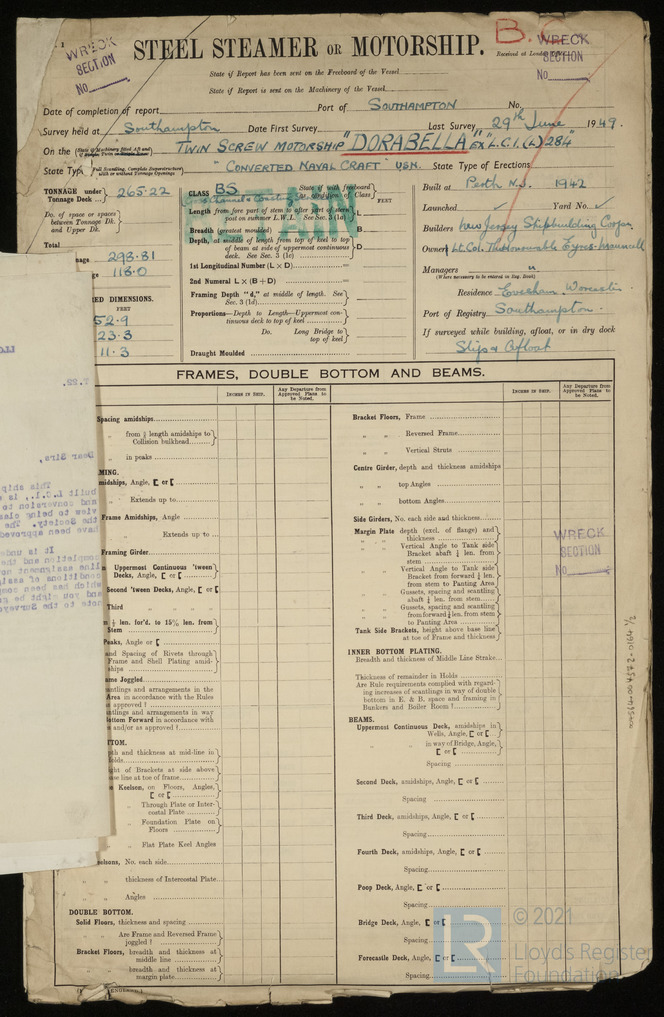 WRECK
SECTION
No
STEEL STEAMER OR MOTORSHIP.
B.
Received at London Office
WRECK
SECTION
No
State if Report has been sent on the Freeboard of the Vessel
State if Report is sent on the Machinery of the Vessel.
Date of completion of report Port of SOUTHAMPTON No.
Survey held at Southampton Date First Survey Last Survey 29th June 1949.
On the TWIN SCREW MOTORSHIP "DORABELLA" EX "L.C.I. (L) 284"
State Type "CONVERTED NAVAL CRAFT" USN. State Type of Erections
TONNAGE under Tonnage Deck 265.22
Do. of space or spaces between Tonnage Dk. and Upper Dk.
Total
nage 293.81
nage 118.0
ED DIMENSIONS.
FEET
52.9
23.3
11.3
CLASS BS
State if with freeboard
FEET
Length from fore part of stem to after part of stern post on summer L.W.L. See Sec. 3 (1a) L
Breadth (greatest moulded) B
Depth, at middle of length from top of keel to top of beam at side of uppermost continuous deck. See Sec. 3 (1c) D
1st Longitudinal Number (L × D)
2nd Numeral L × (B + D)
Framing Depth "d," at middle of length. See Sec. 3 (1d)
Proportions—Depth to Length—Uppermost continuous deck to top of keel
Do. Long Bridge to top of keel
Draught Moulded
Built at Perth N.J. 1942
Launched ✓ Yard No. ✓
Builders New Jersey Shipbuilding Corpn.
Owners Lt. Col. The Honourable Eyres-Maunsell
Managers "
(Where necessary to be entered in Reg. Book)
Residence Evesham. Worcester.
Port of Registry Southampton.
If surveyed while building, afloat, or in dry dock
Slip & Afloat
FRAMES, DOUBLE BOTTOM AND BEAMS.
INCHES IN SHIP.
Any Departure from Approved Plans to be Noted.
INCHES IN SHIP.
Any Departure from Approved Plans to be Noted.
Spacing amidships
" from ⅕ length amidships to Collision bulkhead
" in peaks
MING.
midships, Angle, [ or [
" Extends up to
Frame Amidships, Angle
" Extends up to
Framing Girder
Uppermost Continuous 'tween Decks, Angle, [ or [
Second 'tween Decks, Angle, [ or [
Third " " "
⅕ len. for'd. to 15% len. from Stem
Peaks, Angle or [
and Spacing of Rivets through Frame and Shell Plating amidships
ame Joggled
antlings and arrangements in the Area in accordance with the Rules approved ?
antlings and arrangements in way ottom Forward in accordance with and/or as approved ?
TTOM.
th and thickness at mid-line in Holds
ght of Brackets at side above ase line at toe of frame
Keelson, on Floors, Angles, [ or [
" Through Plate or Intercostal Plate
" Foundation Plate on Floors
" Flat Plate Keel Angles
elsons, No. each side
" thickness of Intercostal Plate
" Angles
DOUBLE BOTTOM.
Solid Floors, thickness and spacing
" Are Frame and Reversed Frame joggled ?
Bracket Floors, breadth and thickness at middle line
" breadth and thickness at margin plate
Bracket Floors, Frame
" " Reversed Frame
" " Vertical Struts
Centre Girder, depth and thickness amidships
" " top Angles
" " bottom Angles
Side Girders, No. each side and thickness
Margin Plate depth (excl. of flange) and thickness
" " Vertical Angle to Tank side Bracket abaft ¼ len. from stem
" " Vertical Angle to Tank side Bracket from forward ¼ len. from stem to Panting Area
" " Gussets, spacing and scantling abaft ¼ len. from stem
" " Gussets, spacing and scantling from forward ¼ len. from stem to Panting Area
Tank Side Brackets, height above base line at toe of Frame and thickness
INNER BOTTOM PLATING.
Breadth and thickness of Middle Line Strake
Thickness of remainder in Holds
Are Rule requirements complied with regarding increases of scantlings in way of double bottom in E. & B. space and framing in Bunkers and Boiler Room ?
BEAMS.
Uppermost Continuous Deck, amidships in Wells, Angle, [ or [
" " in way of Bridge, Angle, [ or [
Spacing
Second Deck, amidships, Angle, [ or [
Spacing
Third Deck, amidships, Angle, [ or [
Spacing
Fourth Deck, amidships, Angle, [ or [
Spacing
Poop Deck, Angle, [ or [
Spacing
Bridge Deck, Angle, [ or [
Spacing
Forecastle Deck, Angle, [ or [
Spacing
WRECK
SECTION
No
LR
© 2021
Lloyd's Register
Foundation